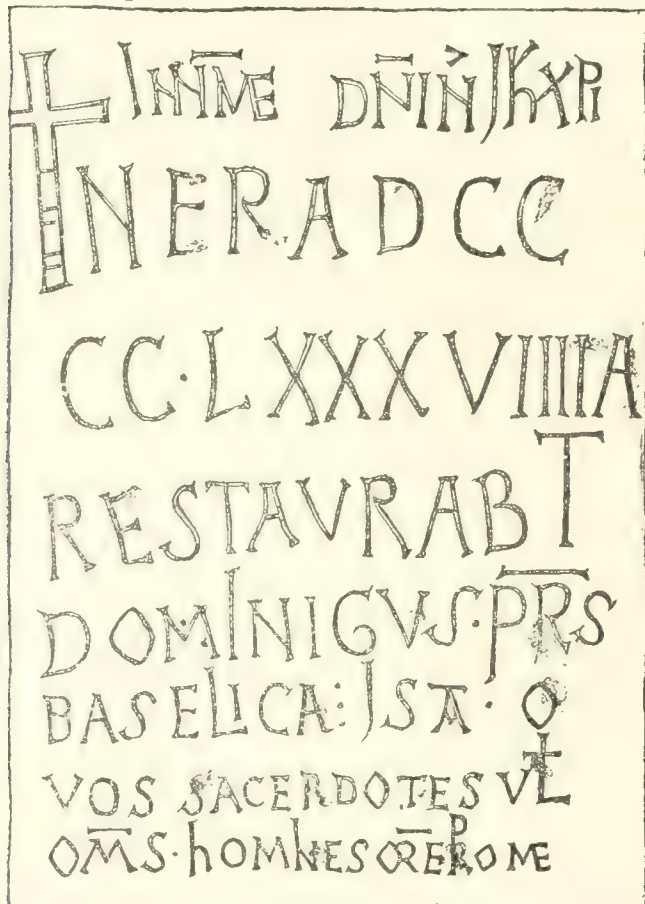 ✝ INN̅M̅E DN̅I N̅ JhXPI
IN ERA DCC
CC·LXXXVIIIIA
RESTAVRABT
DOMINICVS·P̅R̅S
BASELICA: JSTA̅· O
VOS SACERDOTES VL
OM̅S·hOMINES OR̅E PRO ME